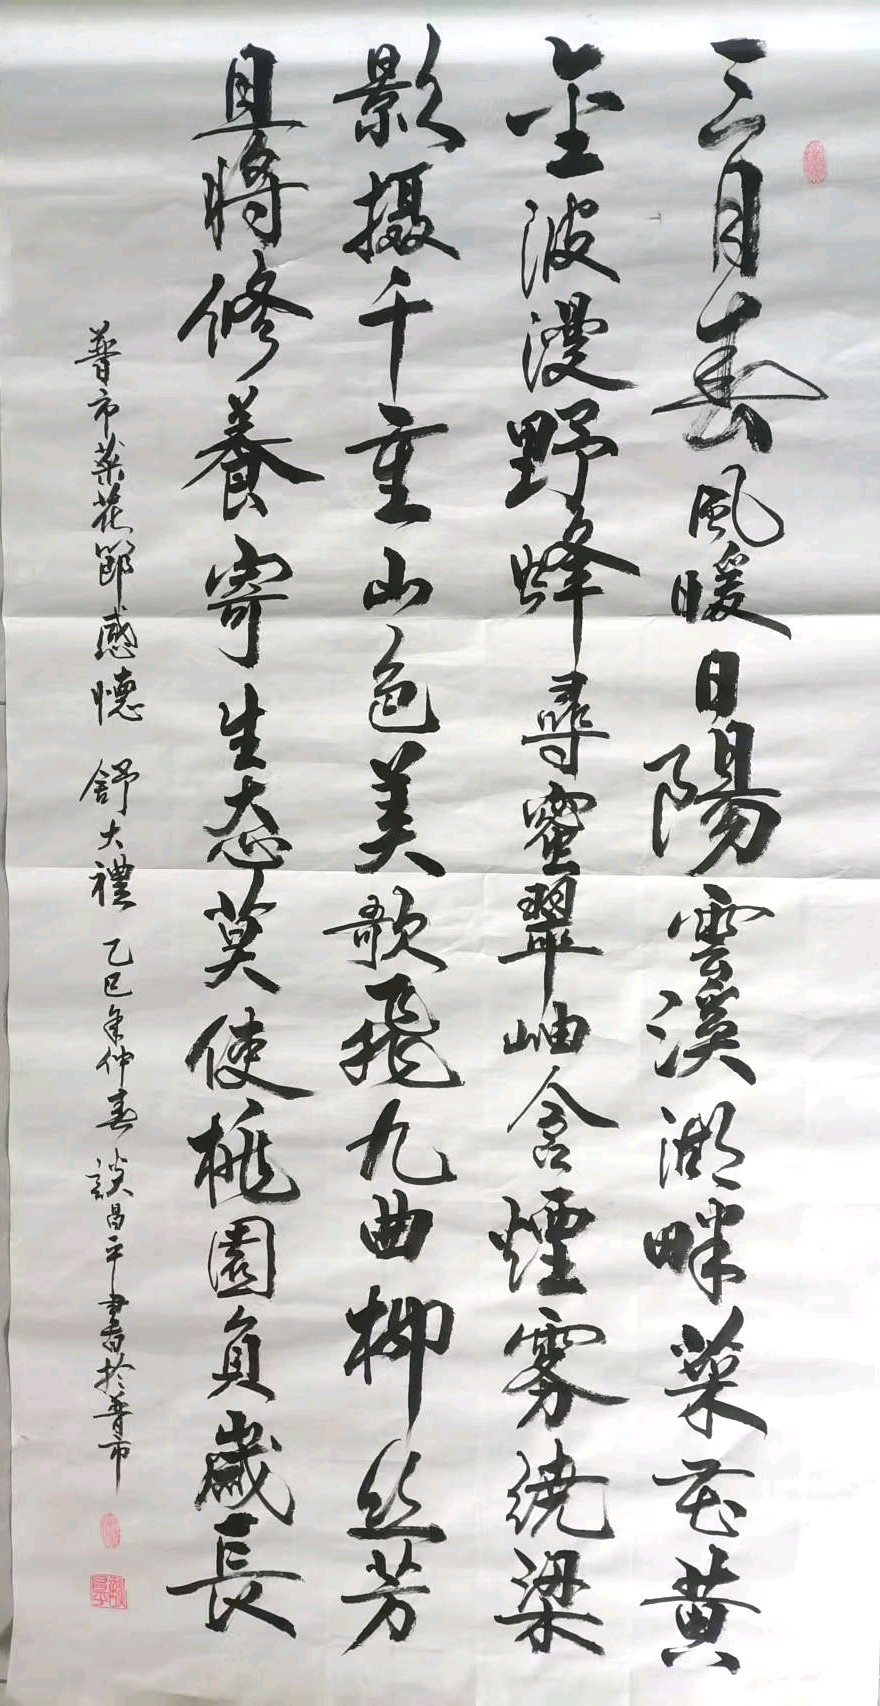 三月春風暖日陽雲溪湖畔菜花黄
金波漫野蜂尋蜜翠岫含煙雾繞梁
影摄千重山色美歌飛九曲柳丝芳
且將修養寄生态莫使桃園負歲長
普市菜花節感憶 舒大禮 乙巳年仲春 談昌平書於普市